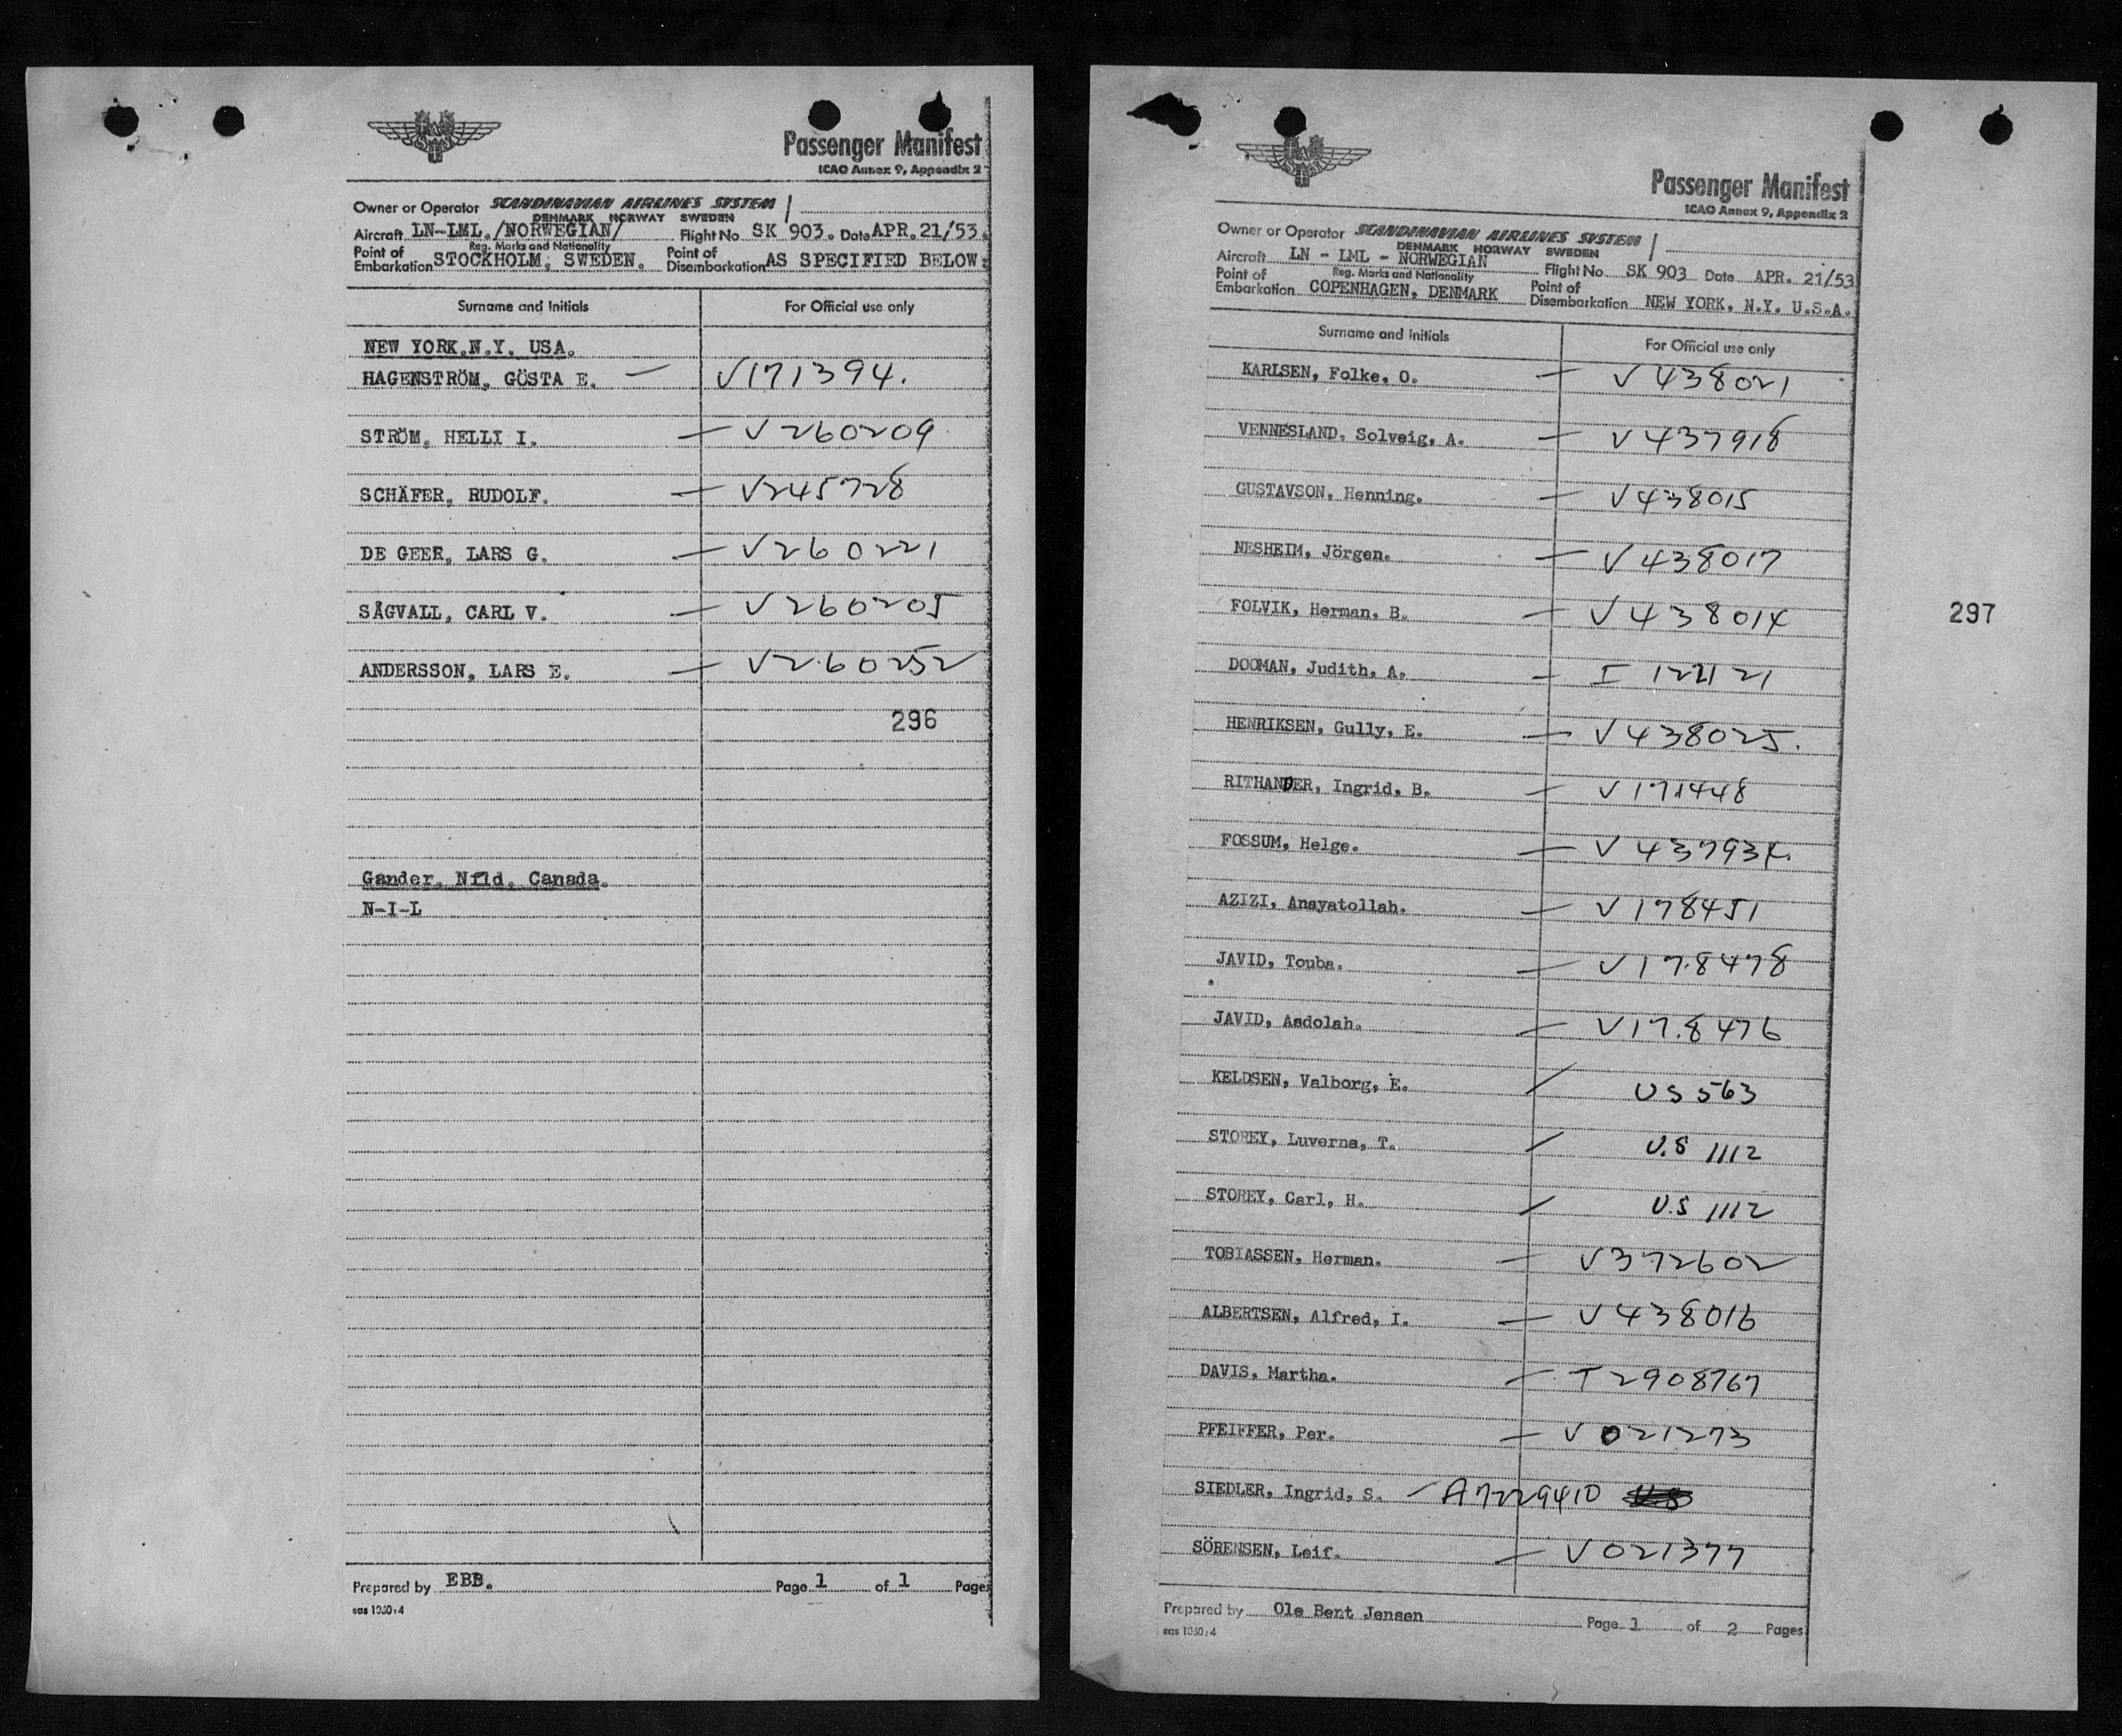 Passenger Manifest
ICAO Annex 9, Appendix 2
Owner or Operator SCANDINAVIAN AIRLINES SYSTEM
DENMARK NORWAY SWEDEN
Aircraft LN-LML./NORWEGIAN/ Flight No SK 903. Date APR.21/53.
Reg. Marks and Nationality
Point of Embarkation STOCKHOLM, SWEDEN. Point of Disembarkation AS SPECIFIED BELOW:
Surname and Initials For Official use only
NEW YORK.N.Y. USA.
HAGENSTRÖM, GÖSTA E. — V171394.
STRÖM, HELLI I. — V260209
SCHÄFER, RUDOLF. — V245728
DE GEER, LARS G. — V260221
SÅGVALL, CARL V. — V260205
ANDERSSON, LARS E. — V260252
296
Gander. Nfld. Canada.
N-I-L
Prepared by EBB. Page 1 of 1 Pages
sas 1050:4
Passenger Manifest
ICAO Annex 9, Appendix 2
Owner or Operator SCANDINAVIAN AIRLINES SYSTEM
DENMARK NORWAY SWEDEN
Aircraft LN - LML - NORWEGIAN Flight No SK 903 Date APR. 21/53
Reg. Marks and Nationality
Point of Embarkation COPENHAGEN, DENMARK Point of Disembarkation NEW YORK, N.Y. U.S.A.
Surname and Initials For Official use only
KARLSEN, Folke, O. — V438021
VENNESLAND, Solveig, A. — V437918
GUSTAVSON, Henning. — V438015
NESHEIM, Jörgen. — V438017
FOLVIK, Herman, B. — V438014
297
DOOMAN, Judith, A. — I
HENRIKSEN, Gully, E. — V438025.
RITHANDER, Ingrid, B. — V171448
FOSSUM, Helge. — V437934.
AZIZI, Anayatollah. — V178451
JAVID, Touba. — V178478
JAVID, Asdolah. — V178476
KELDSEN, Valborg, E. / US 563
STOREY, Luverna, T. / U.S 1112
STOREY, Carl, H. / U.S 1112
TOBIASSEN, Herman. — V372602
ALBERTSEN, Alfred, I. — V438016
DAVIS, Martha. — T2908767
PFEIFFER, Per. — V021273
SIEDLER, Ingrid, S. — A7229410
SÖRENSEN, Leif. — V021377
Prepared by Ole Bent Jensen Page 1 of 2 Pages
sas 1050:4